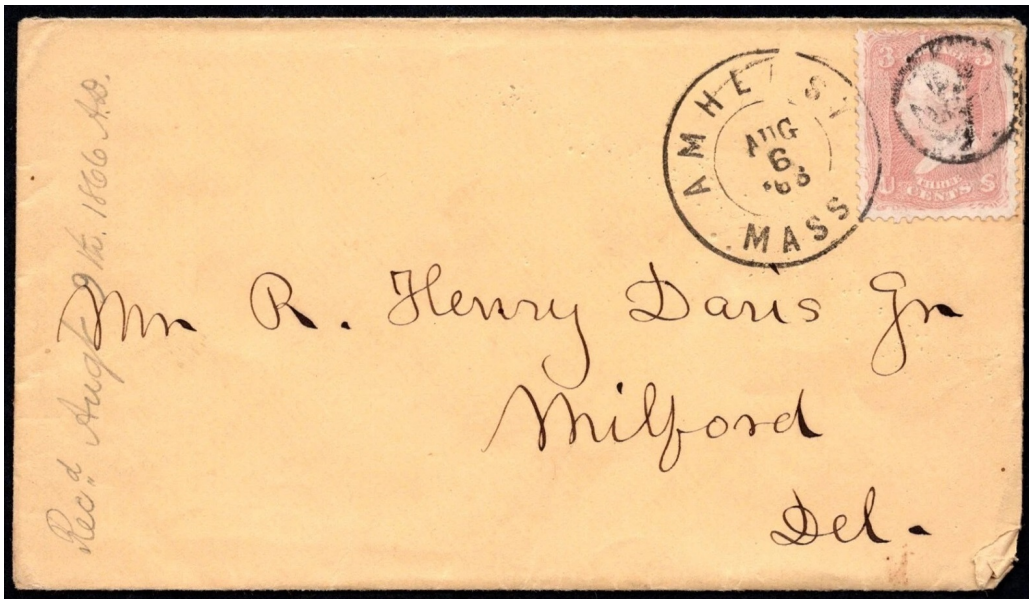 Rec.d Augt 9th. 1866 A.D.
AMHERST
AUG
6
'66
MASS
3 3
U THREE S
CENTS
Mr R. Henry Davis Jr
Milford
Del.